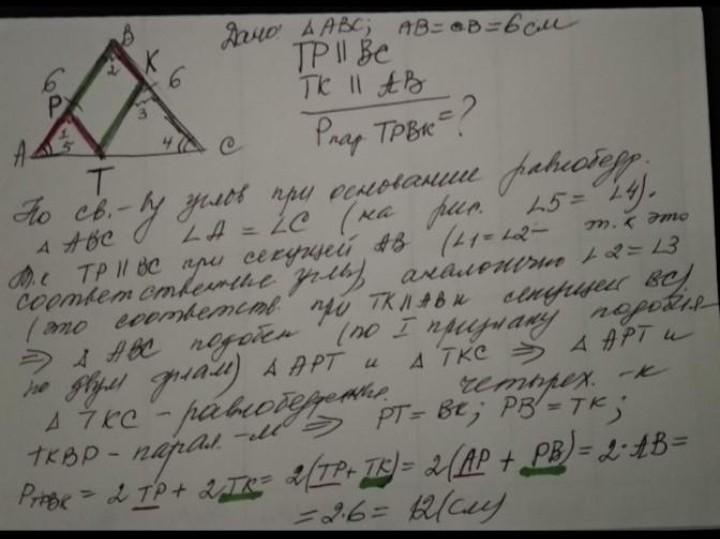 Дано: △ABC; AB=CB=6см
TP || BC
TK || AB
Pпар TPBK=?
B
K
2
6
6
P
3
1
5
4
A
T
C
По св.-ву углов при основание равнобедр.
△ABC ∠A=∠C (на рис. ∠5=∠4).
Т.к TP||BC при секущей AB (∠1=∠2 – т.к это
соответственные углы), аналогично ∠2=∠3
(это соответств. при TK||AB и секущей BC)
⇒ △ABC подобен (по I признаку подобия–
по двум углам) △APT и △TKC ⇒ △APT и
△TKC – равнобедренные. четырех.-к
TKBP – парал.-м ⇒ PT=BK; PB=TK;
PTPBK = 2TP+2TK=2(TP+TK)=2(AP+PB)=2·AB=
=2·6=12(см)